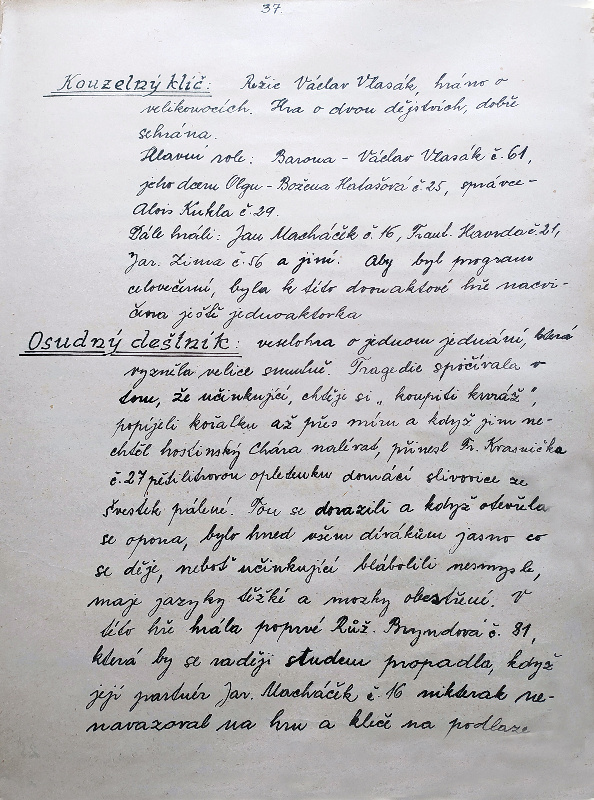 37.
Kouzelný klíč: Režie Václav Vlasák, hráno o
velikonocích. Hra o dvou dějstvích, dobře
sehrána.
Hlavní role: Barona - Václav Vlasák č. 61,
jeho dceru Olgu - Božena Hatašová č. 25, správce -
Alois Kukla č. 29.
Dále hráli: Jan Macháček č. 16, Frant. Havrda č. 21,
Jar. Zima č. 56 a jiní. Aby byl program
celovečerní, byla k této dvouaktové hře nacvi-
čena ještě jednoaktovka
Osudný deštník: veselohra o jednom jednání, která
vyzněla velice smutně. Tragedie spočívala v
tom, že účinkující, chtěje si „koupiti kuráž",
popíjeli kořalku až přes míru a když jim ne-
chtěl hostinský Chára nalévat, přinesl Fr. Krasnička
č. 27 pětilitrovou opletenku domácí slivovice ze
švestek pálené. Tou se dorazili a když otevřela
se opona, bylo hned všem divákům jasno co
se děje, neboť účinkující blábolili nesmysle,
maje jazyky těžké a mozky obestřené. V
této hře hrála poprvé Růž. Bryndová č. 81,
která by se raději studem propadla, když
její partnér Jar. Macháček č. 16 nikterak ne-
navazoval na hru a kleče na podlaze